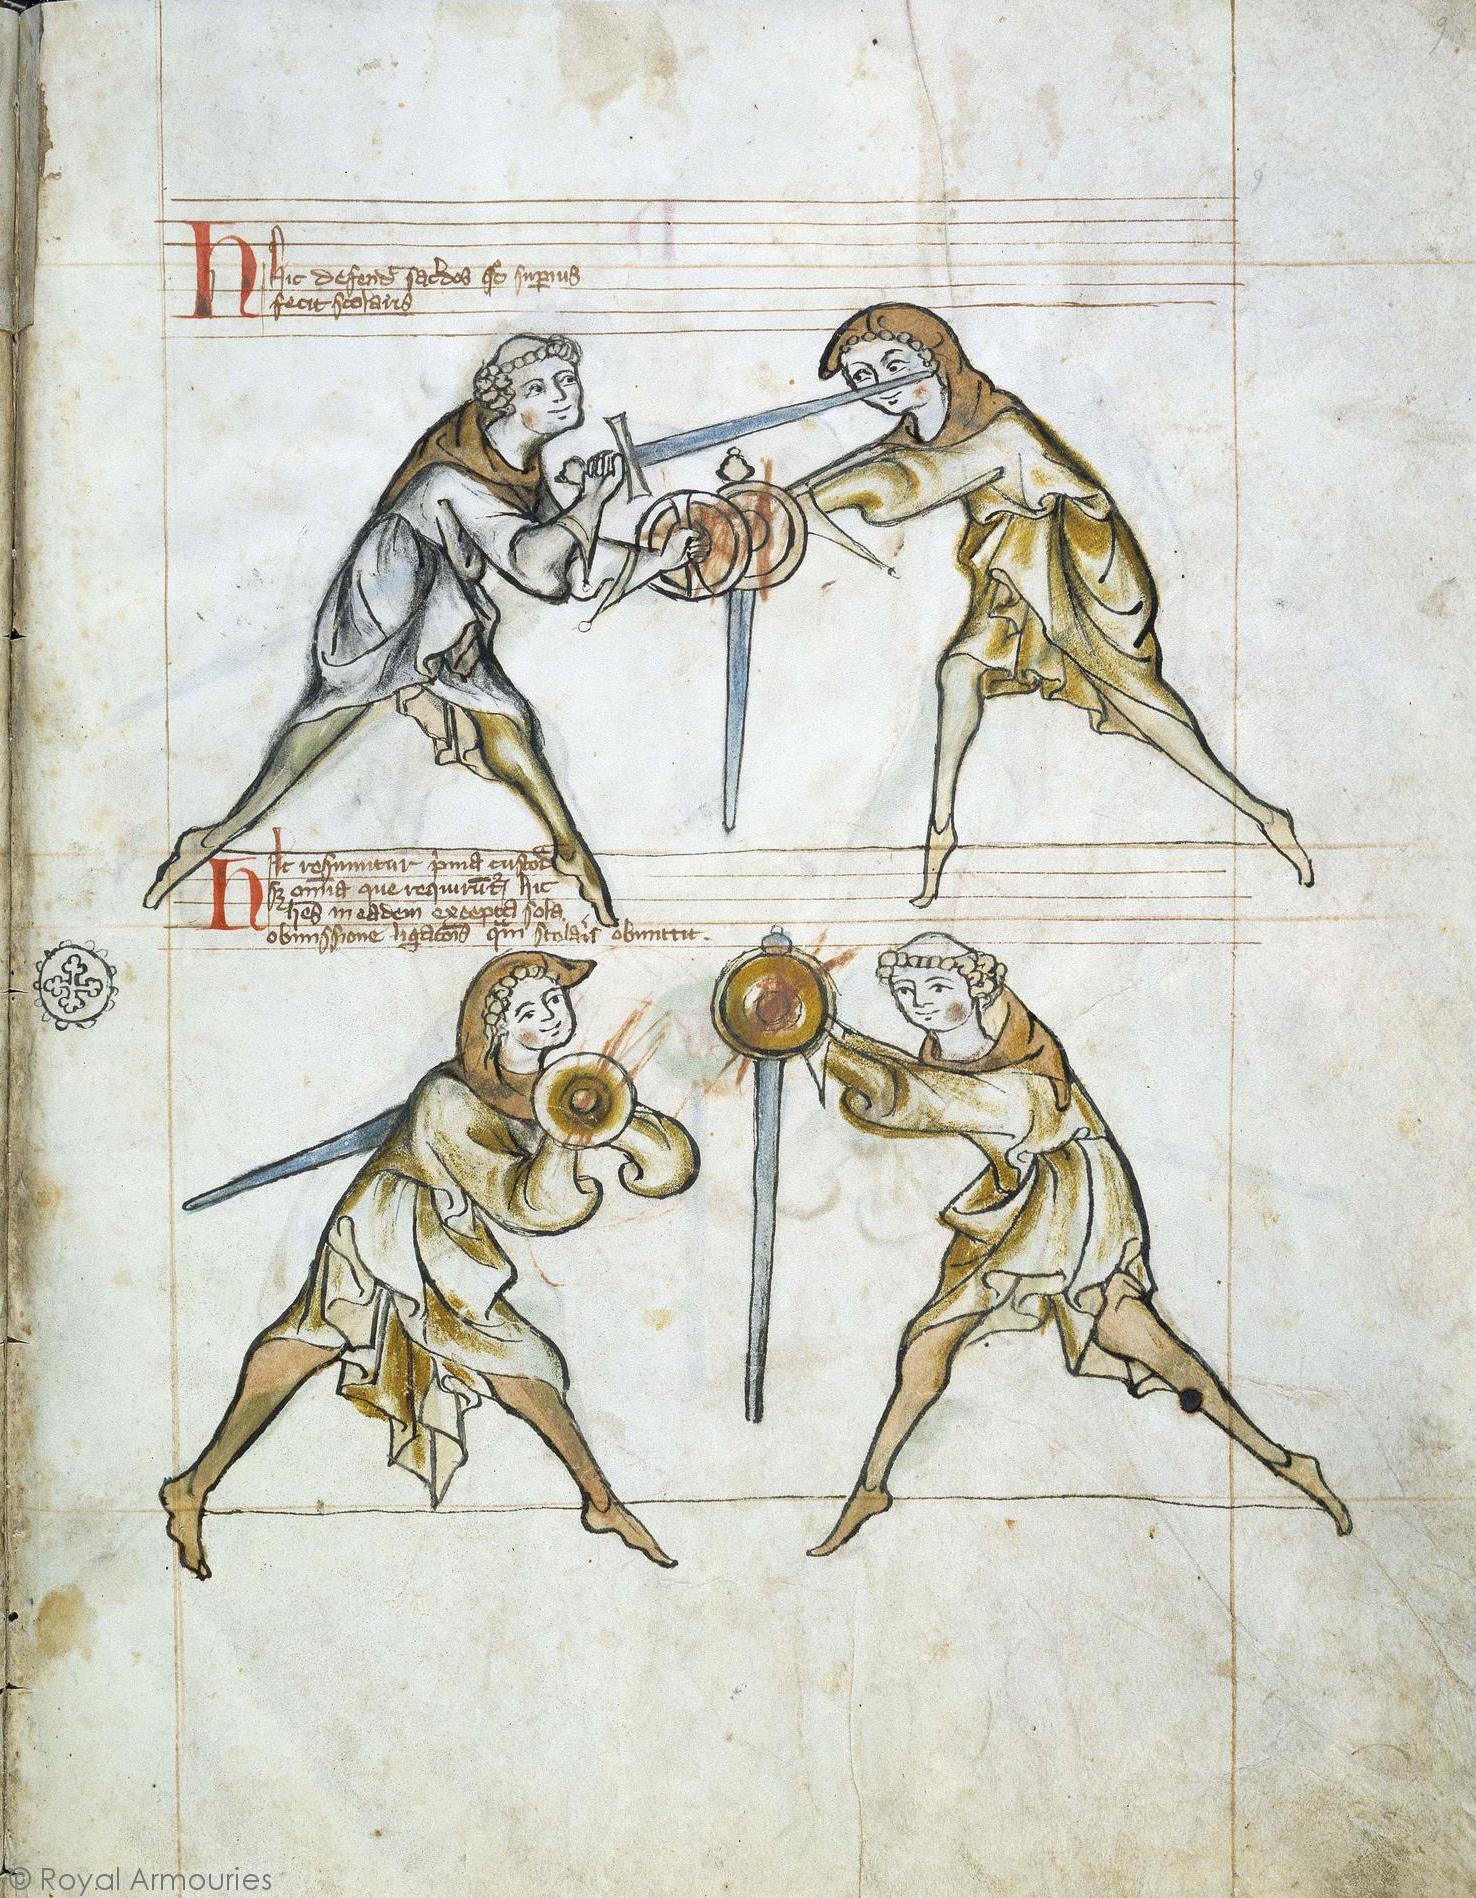 9
9
Hic defend sacdos qd superius
fecit scolaris
Hic resumitur prima custod
sz omnia que requirutr hic
hes in eadem excepta sola
obmissione ligacois qm scolaris obmittit.
© Royal Armouries